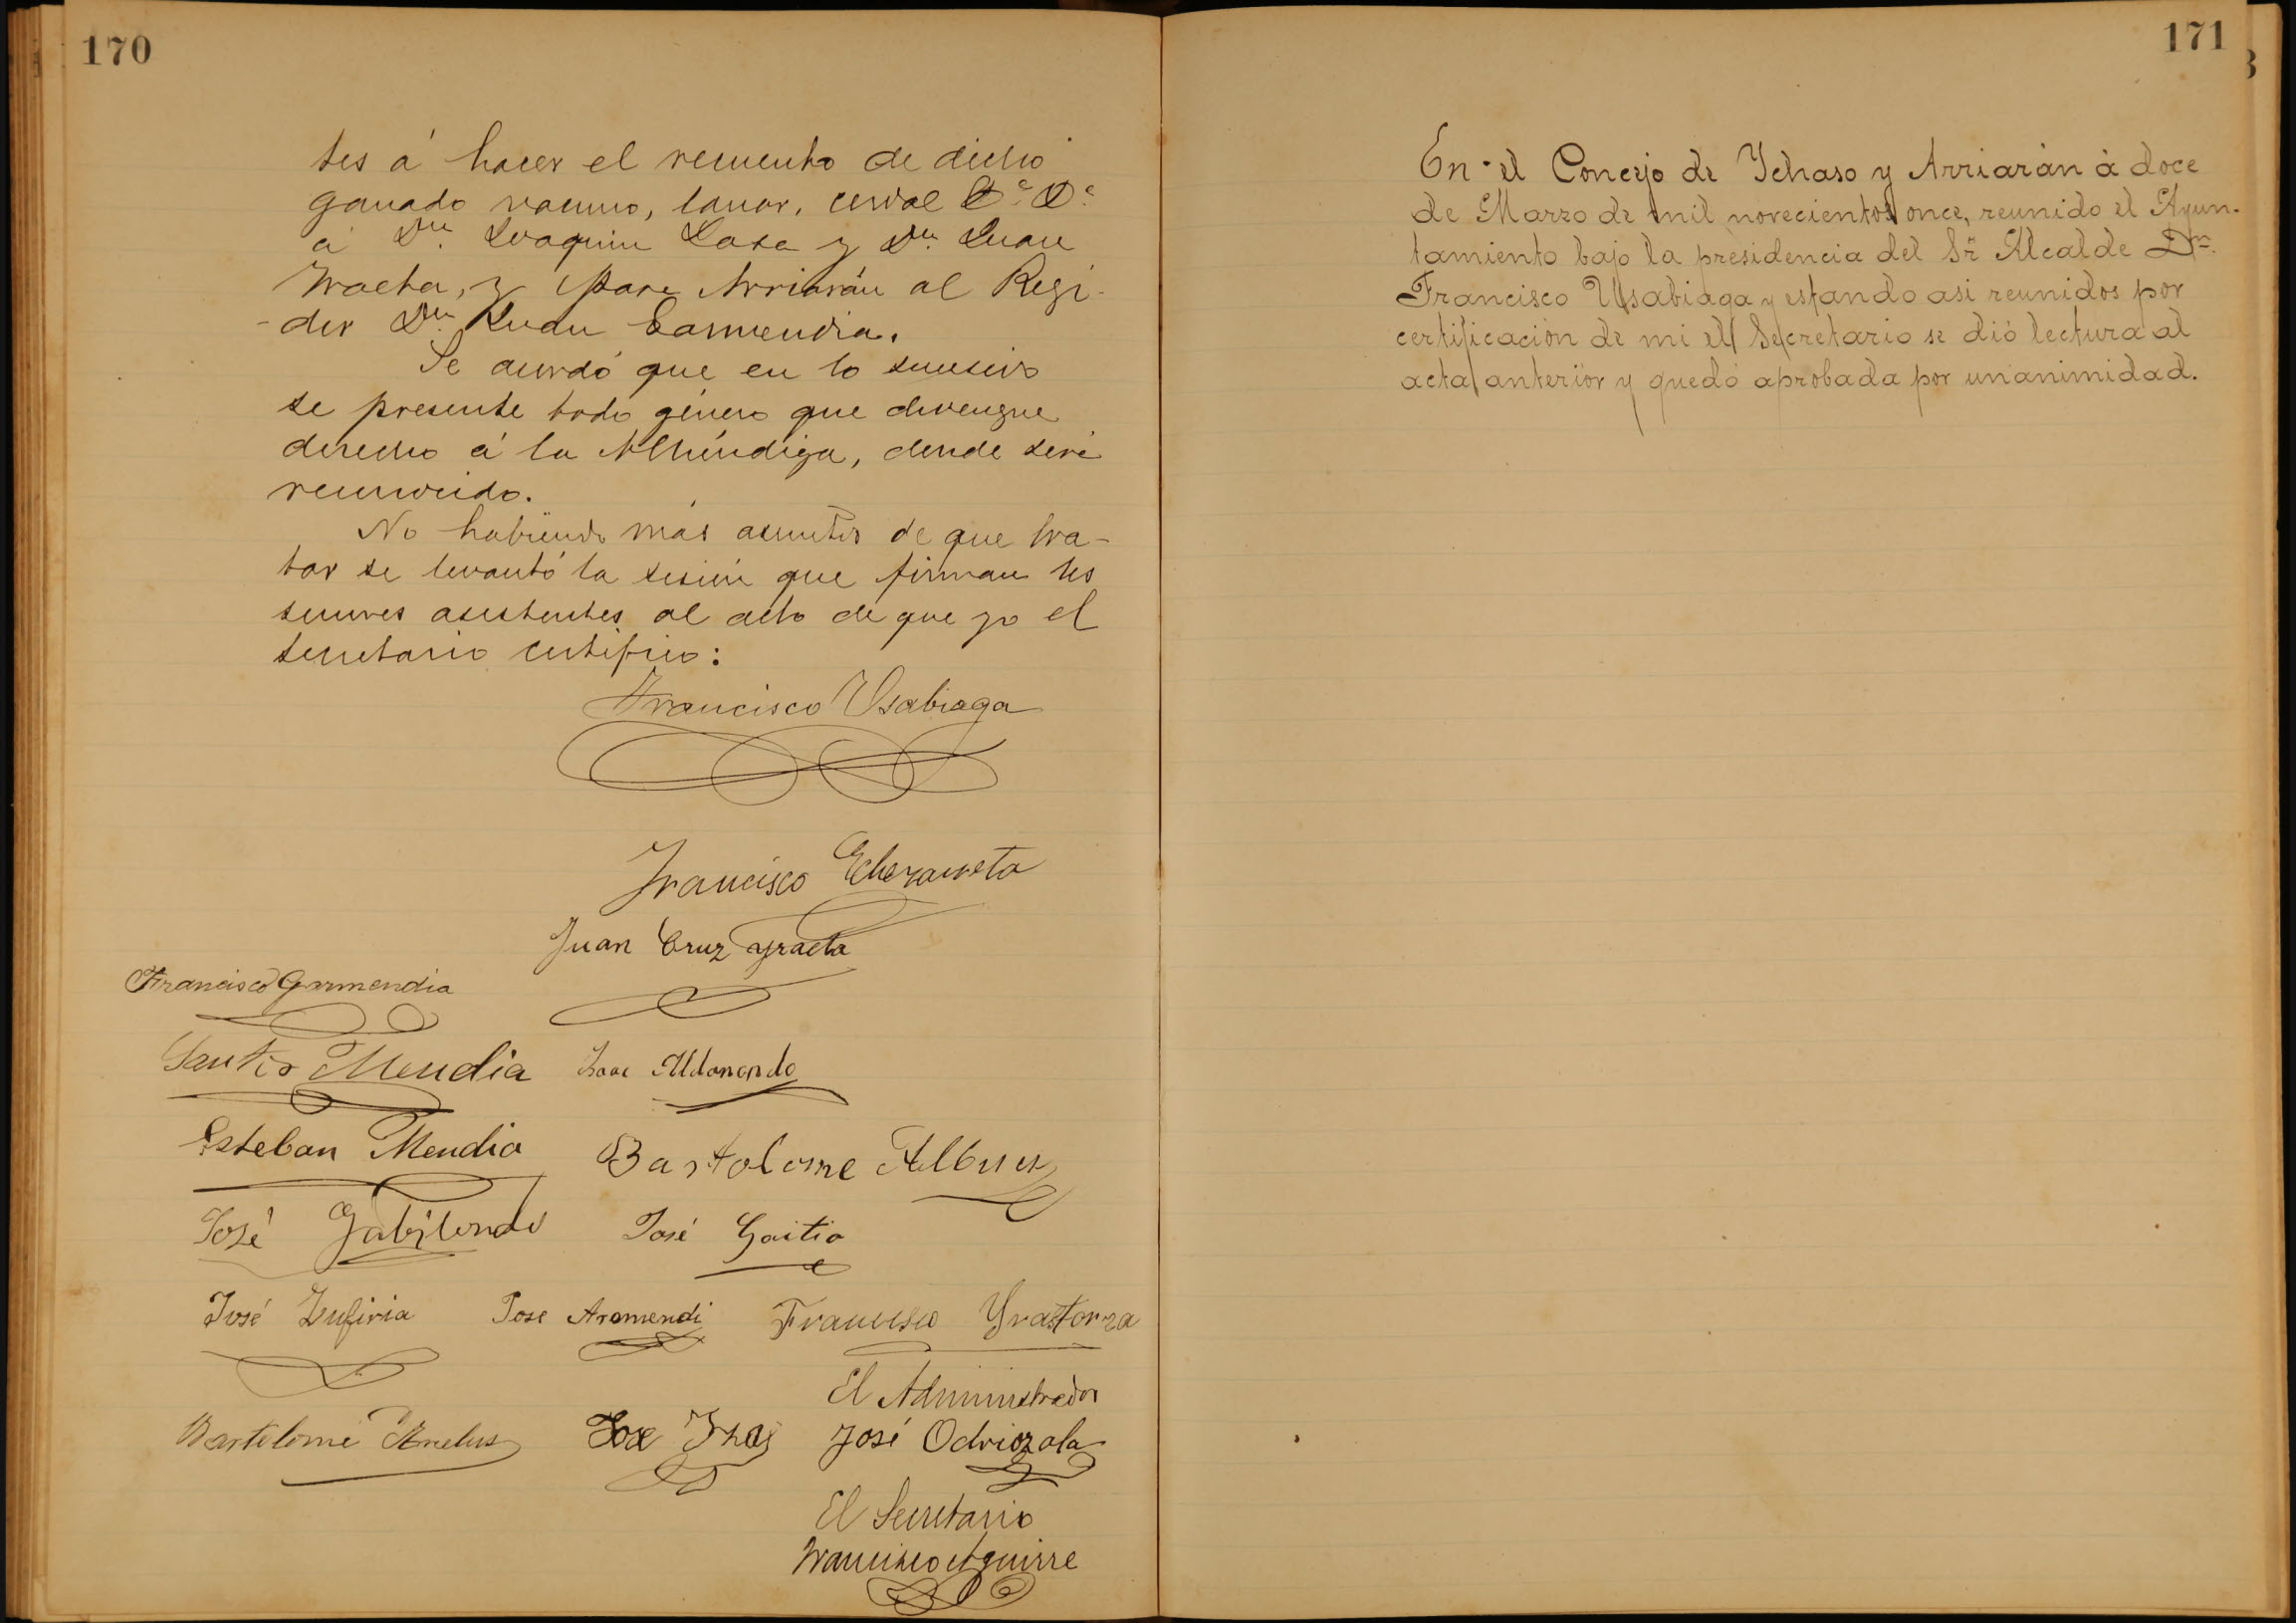 170
tes á hacer el recuento de dicho
ganado vacuno, lanar, cerdal &ª &ª
á Dn. Joaquin Lasa y Dn. Juan
Iraeta, y para Arriarán al Regi-
-dor Dn. Juan Garmendia.
Se acordó que en lo sucesivo
se presente todo género que devengue
derecho á la Alhóndiga, donde será
reconocido.
No habiendo más asuntos de que tra-
tar se levantó la sesión que firman los
señores asistentes al acto de que yo el
secretario certifico:
Francisco Usabiaga
Francisco Echezarreta
Juan Cruz Yraeta
Francisco Garmendia
Santos Mendia
José Aldanondo
Esteban Mendia
Bartolome
José Gabilondo
José Goitia
José Zufiria
Jose Aramendi
Francisco Yrastorza
El Administrador
Bartolomé
Jose
José Odriozola
El Secretario
Francisco Aguirre
171
En el Concejo de Ychaso y Arriarán á doce
de Marzo de mil novecientos once, reunido el Ayun-
tamiento bajo la presidencia del Sr. Alcalde Dn.
Francisco Usabiaga y estando asi reunidos por
certificación de mi el Secretario se dió lectura al
acta anterior y quedó aprobada por unanimidad.